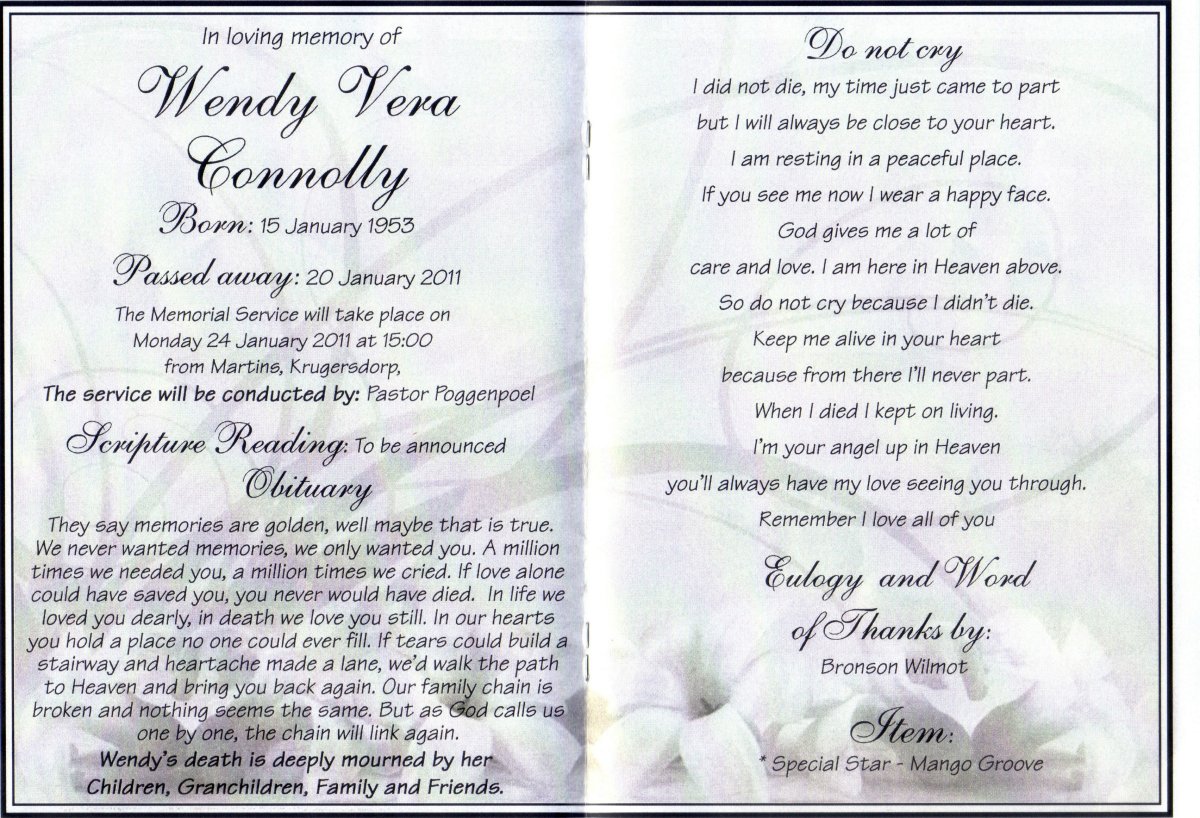 In loving memory of
Wendy Vera
Connolly
Born: 15 January 1953
Passed away: 20 January 2011
The Memorial Service will take place on
Monday 24 January 2011 at 15:00
from Martins, Krugersdorp,
The service will be conducted by: Pastor Poggenpoel
Scripture Reading: To be announced
Obituary
They say memories are golden, well maybe that is true.
We never wanted memories, we only wanted you. A million
times we needed you, a million times we cried. If love alone
could have saved you, you never would have died. In life we
loved you dearly, in death we love you still. In our hearts
you hold a place no one could ever fill. If tears could build a
stairway and heartache made a lane, we'd walk the path
to Heaven and bring you back again. Our family chain is
broken and nothing seems the same. But as God calls us
one by one, the chain will link again.
Wendy's death is deeply mourned by her
Children, Granchildren, Family and Friends.
Do not cry
I did not die, my time just came to part
but I will always be close to your heart.
I am resting in a peaceful place.
If you see me now I wear a happy face.
God gives me a lot of
care and love. I am here in Heaven above.
So do not cry because I didn't die.
Keep me alive in your heart
because from there I'll never part.
When I died I kept on living.
I'm your angel up in Heaven
you'll always have my love seeing you through.
Remember I love all of you
Eulogy and Word
of Thanks by:
Bronson Wilmot
Item:
* Special Star - Mango Groove